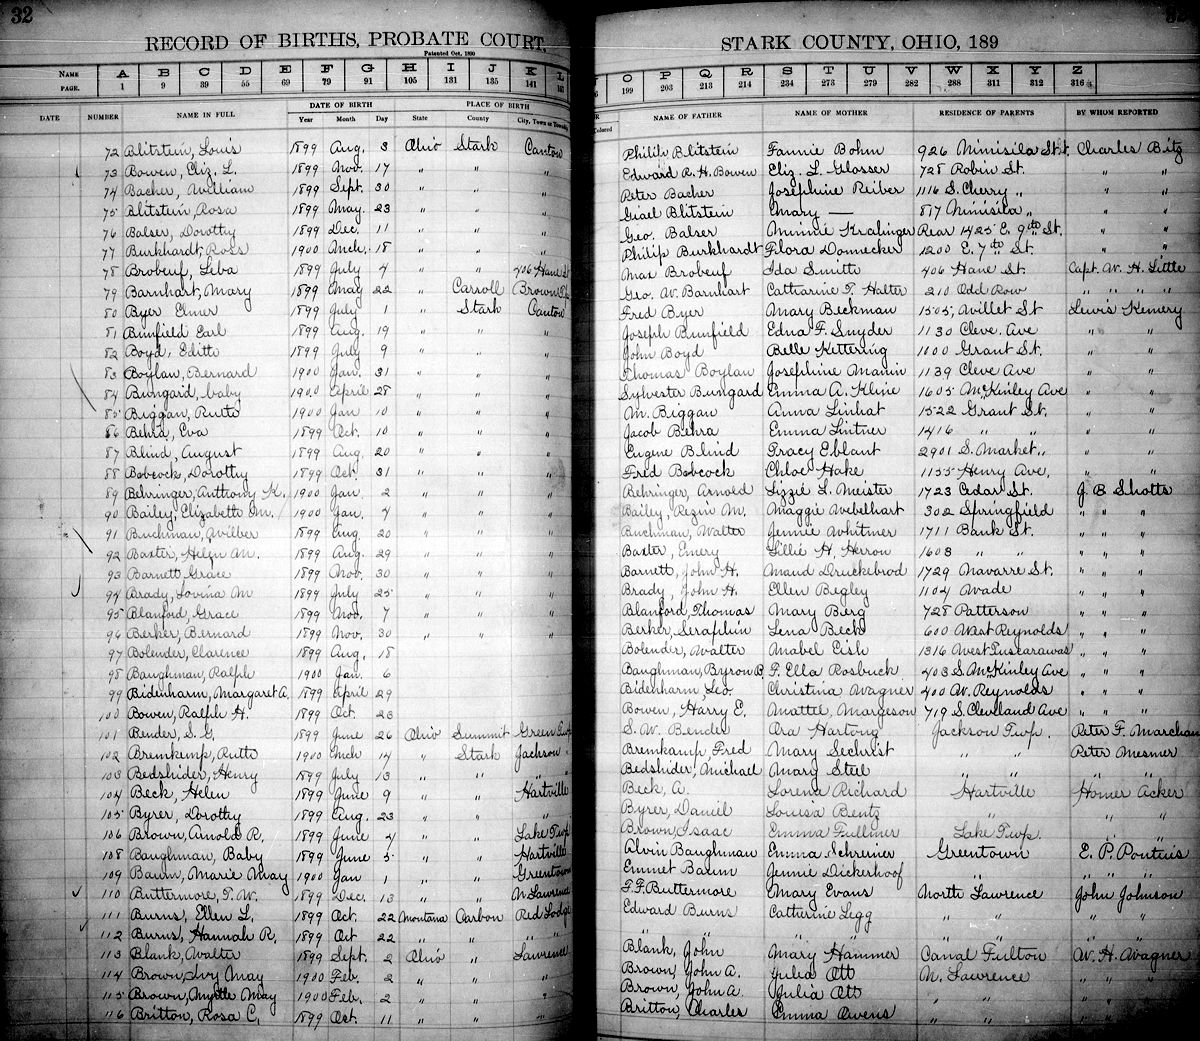 32
RECORD OF BIRTHS, PROBATE COURT, STARK COUNTY, OHIO, 189
Patented Oct. 1890
NAME A B C D E F G H I J K L O P Q R S T U V W X Y Z
PAGE. 1 9 39 55 69 79 91 105 131 135 141 199 203 213 214 234 273 279 282 288 311 312 316
DATE OF BIRTH PLACE OF BIRTH
DATE NUMBER NAME IN FULL Year Month Day State County City, Town or Township Colored NAME OF FATHER NAME OF MOTHER RESIDENCE OF PARENTS BY WHOM REPORTED
72 Blitstein, Louis 1899 Aug. 3 Ohio Stark Canton Philip Blitstein Fannie Bohm 926 Minisila St. Charles Bitz
73 Bowen, Eliz. L. 1899 Nov. 17 " " " Edward R. H. Bowen Eliz. L. Glosser 728 Robin St. " "
74 Bacher, William 1899 Sept. 30 " " " Peter Bacher Josephine Reiber 1116 S. Cherry " " "
75 Blitstein, Rosa 1899 May. 23 " " " Blitstein Mary — 817 Minisila " " "
76 Balser, Dorothy 1899 Dec. 11 " " " Geo. Balser Minnie Kralinger Rear 1425 E. 9th St. " "
77 Burkhardt, Ross 1900 Mch. 18 " " " Philip Burkhardt Flora Donnecker 1200 E. 7th St. " "
78 Brobeuf, Liba 1899 July 4 " " 406 Hane St Max Brobeuf Ida Smith 406 Hane St. Capt. W. H. Little
79 Barnhart, Mary 1899 May 22 " Carroll Brown Geo. W. Barnhart Catharine T. Halter 210 Odd Row " " " "
80 Byer Elmer 1899 July 1 " Stark Canton Fred Byer Mary Beckman 1505, Willet St Lewis Kemery
81 Bunfield Earl 1899 Aug. 19 " " " Joseph Bunfield Edna F. Snyder 1130 Cleve. Ave " "
82 Boyd, Edith 1899 July 9 " " " John Boyd Belle Kettering 1000 Grant St. " "
83 Boylan, Bernard 1900 Jan. 31 " " " Thomas Boylan Josephine Mannin 1139 Cleve Ave " "
84 Bungard, baby 1900 April 28 " " " Sylvester Bungard Emma A. Kline 1605 McKinley Ave " "
85 Biggan, Ruth 1900 Jan 10 " " " M. Biggan Anna Linhat 1522 Grant St. " "
86 Behra, Eva 1899 Oct. 10 " " " Jacob Behra Emma Lintner 1416 " " " "
87 Blind, August 1899 Aug. 20 " " " Eugene Blind Tracy Eblant 2901 S. Market " " "
88 Bobcock, Dorothy 1899 Oct. 31 " " " Fred Bobcock Chloe Hake 1155 Henry Ave, " "
89 Behringer, Anthony K. 1900 Jan. 2 " " " Behringer, Arnold Lizzie L. Meister 1723 Cedar St. J. B. Shotts
90 Bailey, Elizabeth M. 1900 Jan. 4 " " " Bailey, Rezin M. Maggie Webelhart 302 Springfield " " "
91 Buchman, Wilber 1899 Aug. 20 " " " Buchman, Walter Jennie Whitmer 1711 Bank St. " " "
92 Baxter, Helen M. 1899 Aug. 29 " " " Baxter, Emery Lillie H. Herron 1608 " " " " "
93 Barnett, Grace 1899 Nov. 30 " " " Barnett, John H. Maud Druckebrod 1729 Navarre St. " " "
94 Brady, Lovina M 1899 July 25 " " " Brady, John H. Ellen Begley 1104 Wade " " "
95 Blanford, Grace 1899 Nov. 7 " " " Blanford, Thomas Mary Berg 728 Patterson " " "
96 Berker, Bernard 1899 Nov. 30 " " " Berker, Seraphin Lena Beck 600 West Reynolds " " "
97 Bolender, Clarence 1899 Aug. 18 Bolender, Walter Mabel Eish 1316 West Tuscarawas " " "
98 Baughman, Ralph 1900 Jan. 6 Baughman, Byron B. F. Ella Rosbuck 403 S. McKinley Ave " " "
99 Bidenharm, Margaret A. 1899 April 29 Bidenharm, Leo Christina Wagner 400 W. Reynolds " " "
100 Bowen, Ralph H. 1899 Oct. 23 Bowen, Harry E. Mattie, Margeson 719 S. Cleveland Ave " " "
101 Bender, S. G. 1899 June 26 Ohio Summit Green S. W. Bender Ora Hartong Jackson Twp. Peter F. Marchan
102 Bremkemp, Ruth 1900 Mch 14 " Stark Jackson " Bremkamp, Fred Mary Sechrist " " Peter Mesmer
103 Bedshider, Henry 1899 July 13 " " " " Bedshider, Michael Mary Steel " " " "
104 Beck, Helen 1899 June 9 " " Hartville Beck, A. Lorena Richard Hartville Homer Acker
105 Byrer, Dorothy 1899 Aug. 23 " " " Byrer, Daniel Louisa Bentz " " "
106 Brown, Arnold R. 1899 June 4 " " Lake Twp Brown, Isaac Emma Fullmer Lake Twp. " "
108 Baughman, Baby 1899 June 5 " " Hartville Alvin Baughman Emma Schreiner Greentown E. P. Pontius
109 Baum, Marie May 1900 Jan 1 " " Greentown Emmet Baum Jennie Dickerhoof " " " "
110 Buttermore, T. W. 1899 Dec. 13 " " N. Lawrence F. F. Buttermore Mary Evans North Lawrence John Johnson
111 Burns, Ellen L. 1899 Oct. 22 Montana Carbon Red Lodge Edward Burns Catherine Legg " " " "
112 Burns, Hannah R. 1899 Oct 22 " " " " " " " " " " "
113 Blank, Walter 1899 Sept. 2 Ohio " Lawrence Blank, John Mary Hammer Canal Fulton W. H. Wagner
114 Brown, Ivy May 1900 Feb. 2 " " " Brown, John A. Julia Ott N. Lawrence " " "
115 Brown, Myrtle May 1900 Feb. 2 " " " Brown, John A. Julia Ott " " " " "
116 Britton, Rosa C, 1899 Oct. 11 " " " Britton, Charles Emma Owens " " " " "